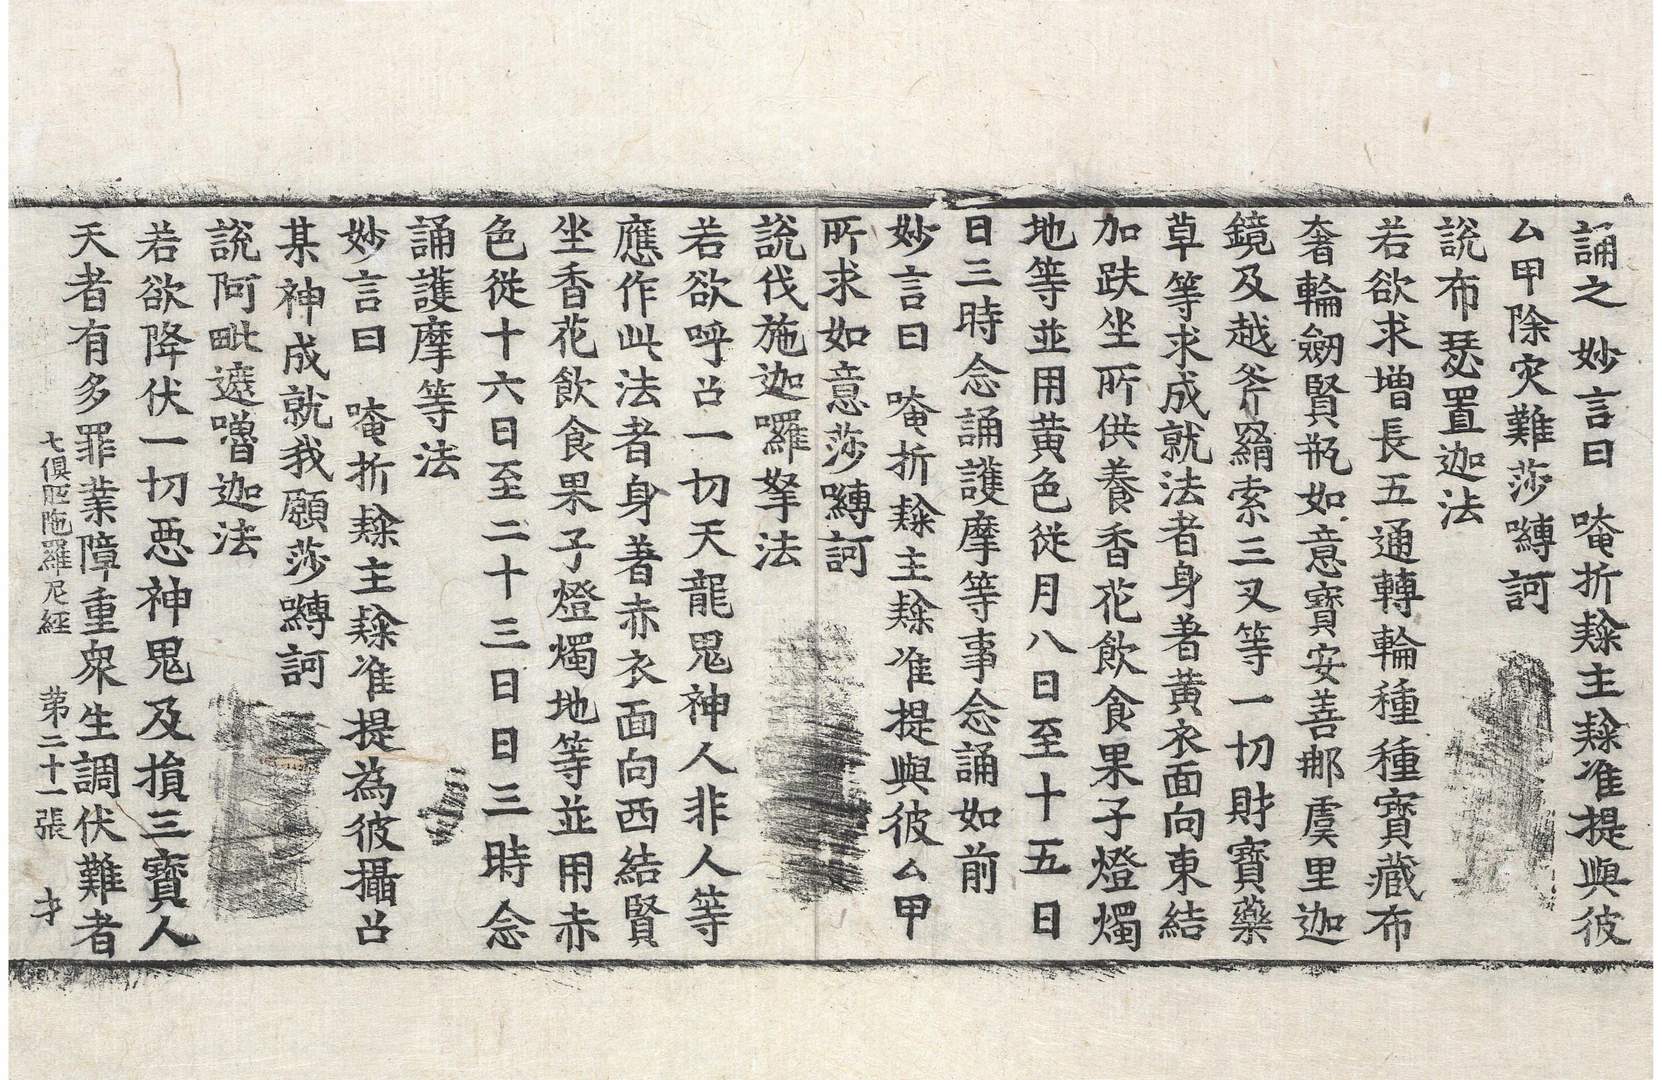 誦之 妙言曰 唵折隸主隸准提與彼
厶甲除灾難莎嚩訶
説布瑟置迦法
若欲求增長五通轉輪種種寳藏布
奢輪劒賢瓶如意寳安善那虞里迦
鏡及越斧羂索三叉等一切財寳藥
草等求成就法者身著黄衣面向東結
加趺坐所供養香花飲食果子燈燭
地等並用黄色従月八日至十五日
日三時念誦護摩等事念誦如前
妙言曰 唵折隸主隸准提與彼厶甲
所求如意莎嚩訶
説伐施迦囉拏法
若欲呼召一切天龍鬼神人非人等
應作此法者身著赤衣面向西結賢
坐香花飲食果子燈燭地等並用赤
色従十六日至二十三日日三時念
誦護摩等法
妙言曰 唵折隸主隸准提為彼攝召
某神成就我願莎嚩訶
説阿毗遮嚕迦法
若欲降伏一切悪神鬼及損三寳人
天者有多罪業障重衆生調伏難者
七俱胝陁羅尼經 苐二十一張 才